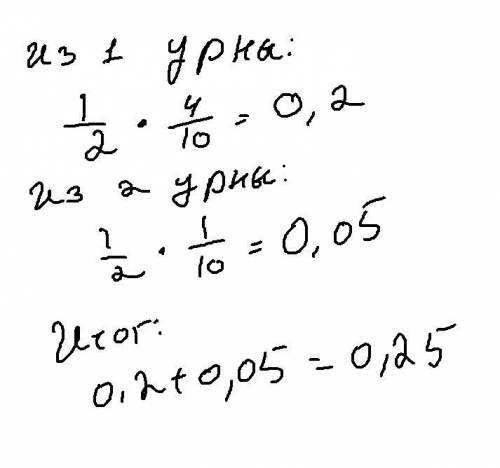 из 1 урны:
1/2 · 4/10 = 0,2
из 2 урны:
1/2 · 1/10 = 0,05
Итог:
0.2+0,05=0,25